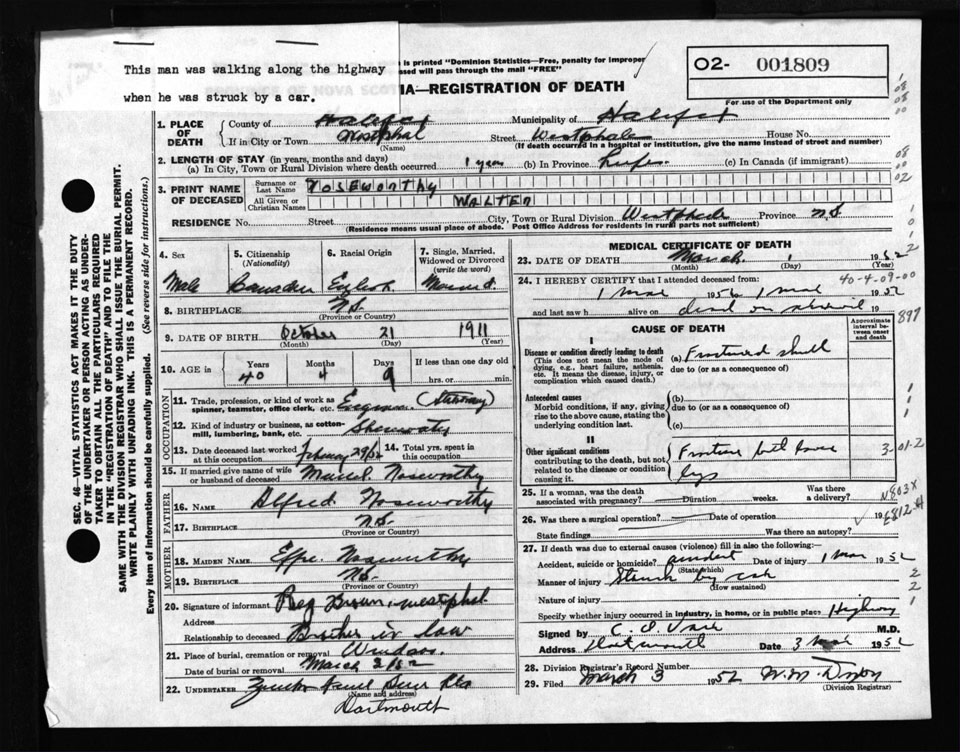 This man was walking along the highway
when he was struck by a car.
is printed "Dominion Statistics—Free, penalty for improper
ssed will pass through the mail "FREE"
IA—REGISTRATION OF DEATH
O2- 001809
For use of the Department only
1. PLACE OF DEATH
County of Halifax Municipality of Halifax
If in City or Town Westphal Street Westphale House No.
(Name) (If death occurred in a hospital or institution, give the name instead of street and number)
2. LENGTH OF STAY (in years, months and days)
(a) In City, Town or Rural Division where death occurred 1 year (b) In Province Life (c) In Canada (if immigrant)
3. PRINT NAME OF DECEASED
Surname or Last Name NOSEWORTHY
All Given or Christian Names WALTER
RESIDENCE No. Street City, Town or Rural Division Westphale Province N.S.
(Residence means usual place of abode. Post Office Address for residents in rural parts not sufficient)
4. Sex Male
5. Citizenship (Nationality) Canadian
6. Racial Origin English
7. Single, Married, Widowed or Divorced (write the word) Married
8. BIRTHPLACE N.S.
(Province or Country)
9. DATE OF BIRTH October 21 1911
(Month) (Day) (Year)
10. AGE in Years 40 Months 4 Days 9 If less than one day old hrs. or min.
OCCUPATION
11. Trade, profession, or kind of work as spinner, teamster, office clerk, etc. Engineer (Stationary)
12. Kind of industry or business, as cotton-mill, lumbering, bank, etc.
13. Date deceased last worked at this occupation February 29/52 14. Total yrs. spent in this occupation
15. If married give name of wife or husband of deceased Noseworthy
FATHER
16. NAME Alfred Noseworthy
17. BIRTHPLACE N.S.
(Province or Country)
MOTHER
18. MAIDEN NAME Effie Nosworthy
19. BIRTHPLACE N.S.
(Province or Country)
20. Signature of informant Reg Brown, Westphal
Address
Relationship to deceased Brother in law
21. Place of burial, cremation or removal Windsor
Date of burial or removal March 2/52
22. UNDERTAKER
(Name and address)
Dartmouth
MEDICAL CERTIFICATE OF DEATH
23. DATE OF DEATH March 1 1952
(Month) (Day) (Year)
24. I HEREBY CERTIFY that I attended deceased from:
40-4-09-00
1 Mar 1952 to 1 Mar 1952
and last saw h alive on dead on arrival 19
897
CAUSE OF DEATH
Approximate interval between onset and death
I
Disease or condition directly leading to death (a) Fractured skull
(This does not mean the mode of dying, e.g., heart failure, asthenia, etc. It means the disease, injury, or complication which caused death.)
due to (or as a consequence of)
Antecedent causes
Morbid conditions, if any, giving rise to the above cause, stating the underlying condition last.
(b)
due to (or as a consequence of)
(c)
II
Other significant conditions
contributing to the death, but not related to the disease or condition causing it.
Fracture both lower legs
3-01-2
25. If a woman, was the death associated with pregnancy? Duration weeks. Was there a delivery?
N803X
26. Was there a surgical operation? Date of operation 19
E812.4
State findings Was there an autopsy?
27. If death was due to external causes (violence) fill in also the following:
Accident, suicide or homicide? Accident Date of injury 1 Mar 1952
(State which)
Manner of injury Struck by car
(How sustained)
Nature of injury
Specify whether injury occurred in industry, in home, or in public place Highway
Signed by M.D.
Address Dartmouth Date 3 Mar 1952
28. Division Registrar's Record Number
29. Filed March 3 1952 W. M. Dixon
(Division Registrar)
SEC. 46—VITAL STATISTICS ACT MAKES IT THE DUTY
OF THE UNDERTAKER OR PERSON ACTING AS UNDER-
TAKER TO OBTAIN ALL THE PARTICULARS REQUIRED
IN THE "REGISTRATION OF DEATH" AND TO FILE THE
SAME WITH THE DIVISION REGISTRAR WHO SHALL ISSUE THE BURIAL PERMIT.
WRITE PLAINLY WITH UNFADING INK. THIS IS A PERMANENT RECORD.
Every item of information should be carefully supplied. (See reverse side for instructions.)